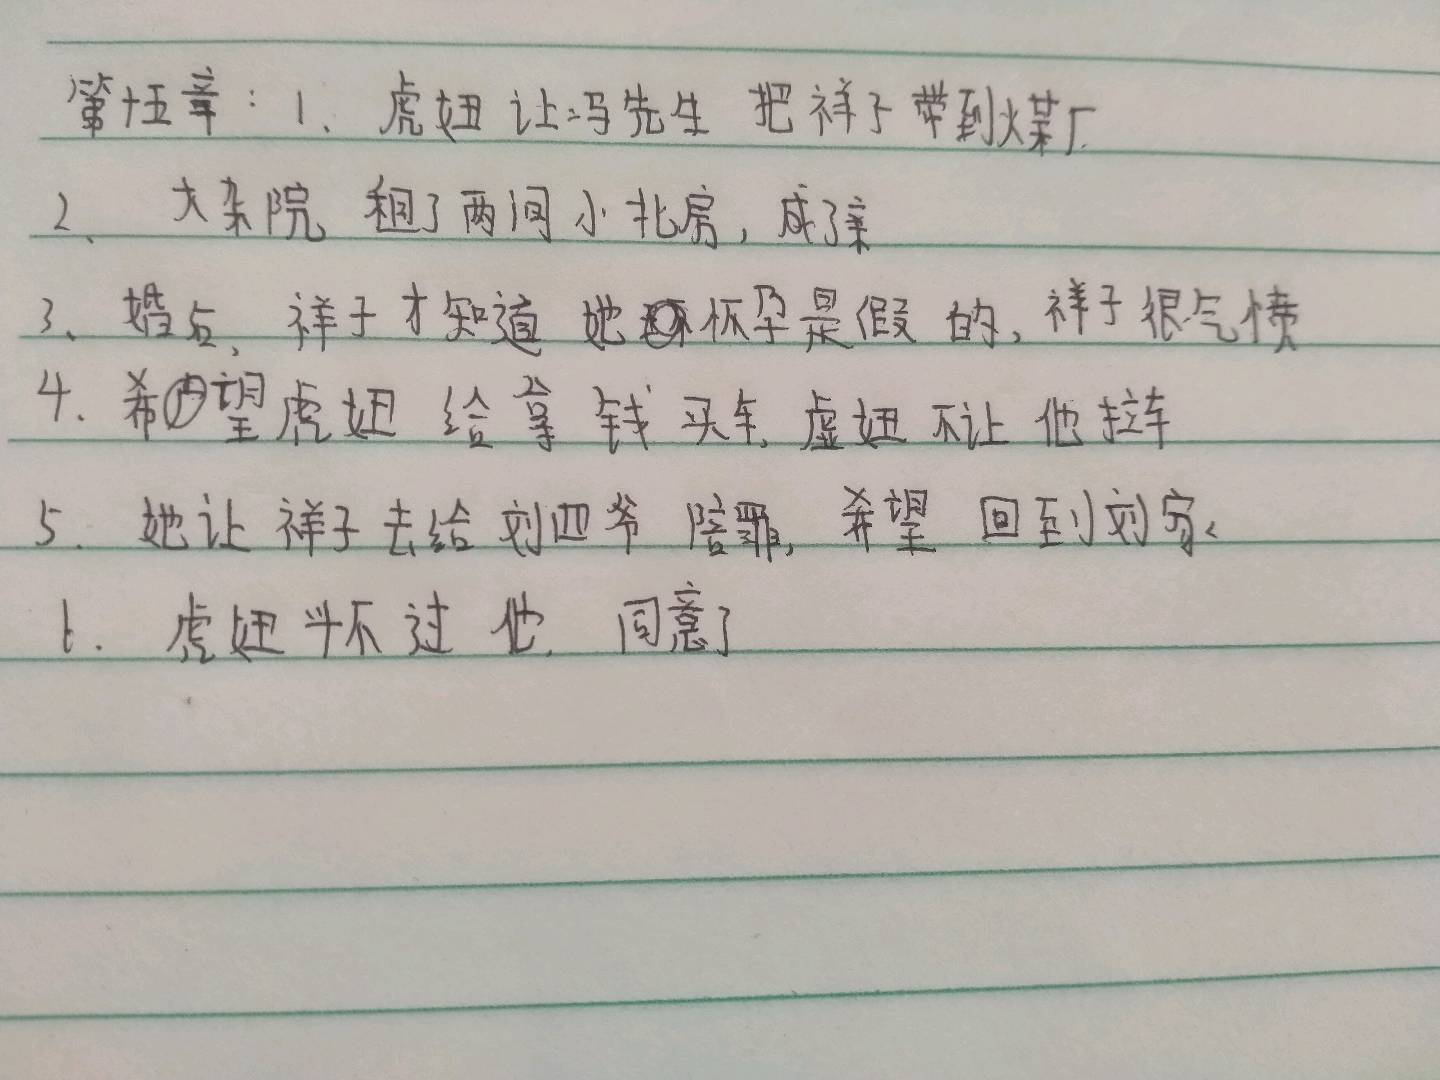 第十五章：1、虎妞让冯先生把祥子带到煤厂.
2、大杂院租了两间小北房，成了亲
3、婚后，祥子才知道她怀孕是假的，祥子很气愤
4.希望虎妞给拿钱买车，虚妞不让他拉车
5.她让祥子去给刘四爷陪罪，希望回到刘家、
6.虎妞斗不过他，同意了